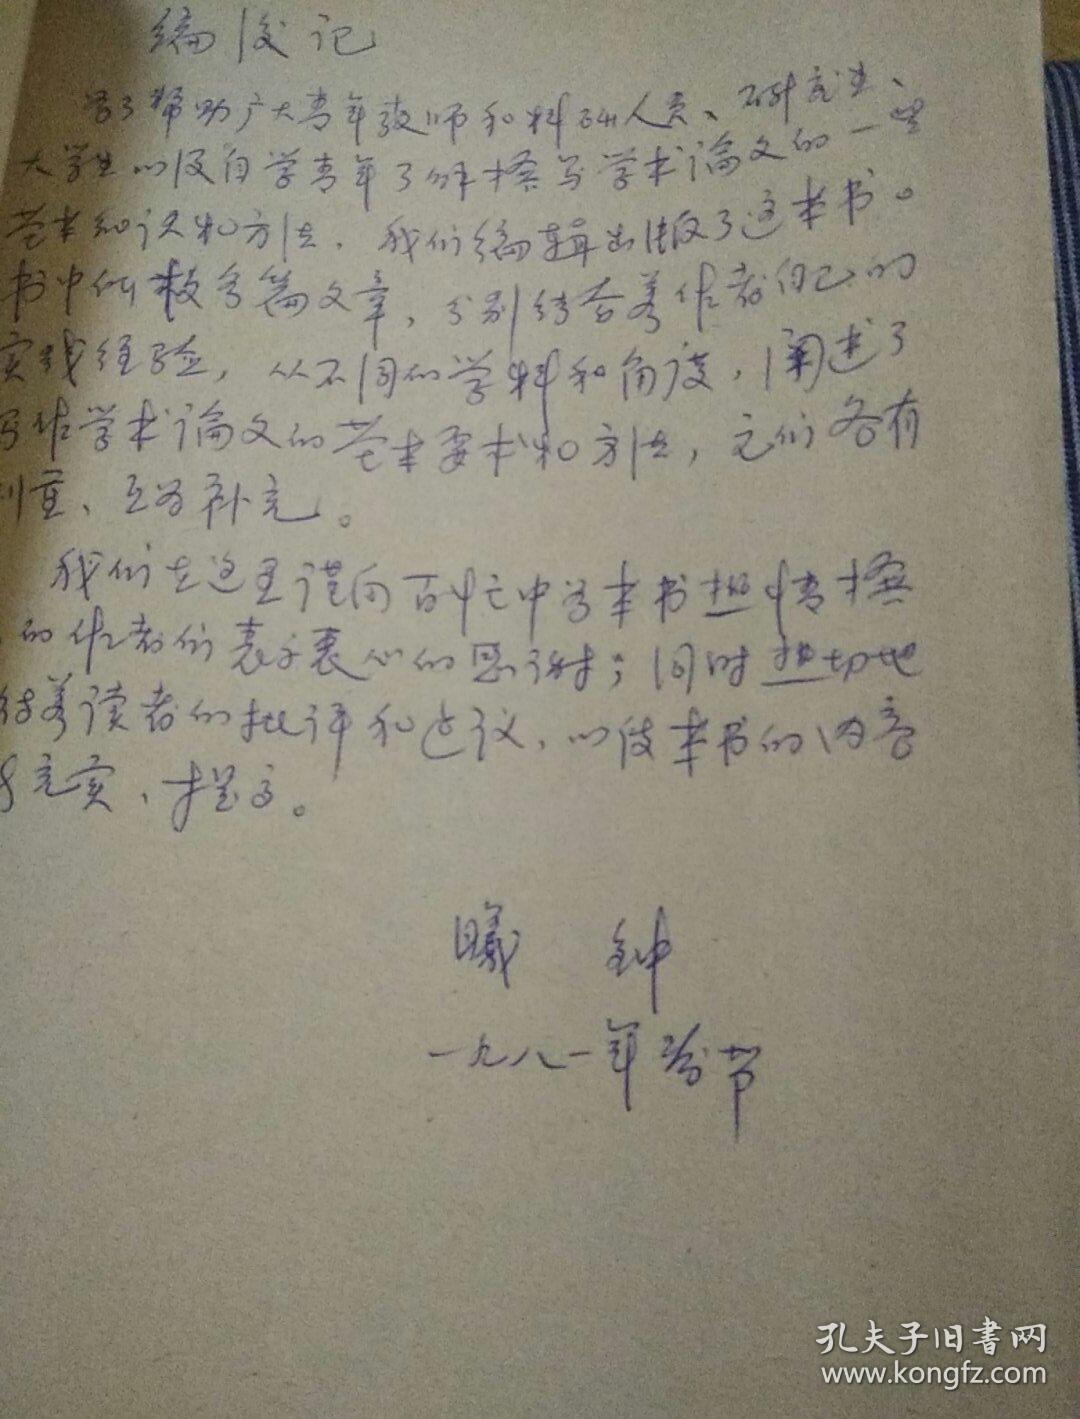 编后记
为了帮助广大青年教师和科研人员、研究生、
大学生以及自学青年了解撰写学术论文的一些
基本知识和方法，我们编辑出版了这本书。
书中所收各篇文章，分别结合着作者自己的
实践经验，从不同的学科和角度，阐述了
写作学术论文的基本要求和方法，它们各有
侧重、互为补充。
我们在这里谨向百忙中为本书热情撰
的作者们表示衷心的感谢；同时热切地
待着读者的批评和建议，以使本书的内容
充实、提高。
曦 钟
一九八一年春节
孔夫子旧書网
www.kongfz.com